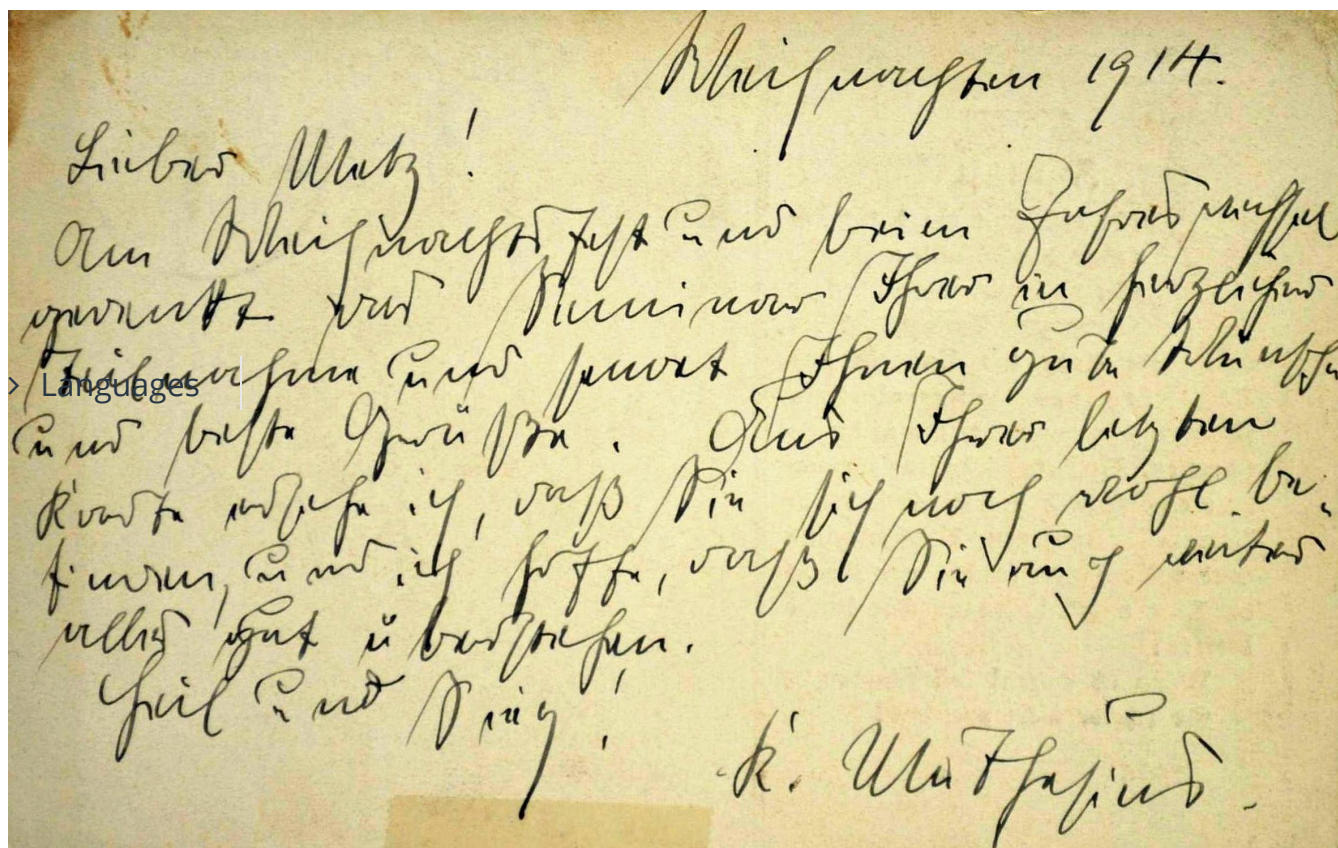 Weihnachten 1914.
Lieber Metz!
Am Weihnachtsfest und beim Jahreswechsel
gedenkt das Seminar Ihrer in herzlicher
Teilnahme und sendet Ihnen gute Wünsche
Languages
und beste Grüße. Aus Ihrer letzten
Karte ersehe ich, daß Sie sich noch wohl be-
finden, und ich hoffe, daß Sie auch weiter
alles gut überstehen.
Heil und Sieg!
K. Muthesius.